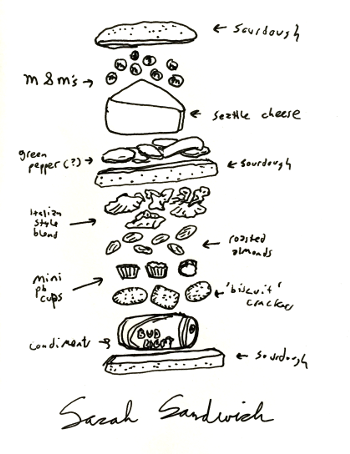 Sourdough
M & M's
Seattle cheese
green
pepper(?)
Sourdough
Italian
style
blend
roasted
almonds
mini
pb
cups
'biscuit'
cracker
condiment
BUD
LIGHT
Sourdough
Sarah Sandwich